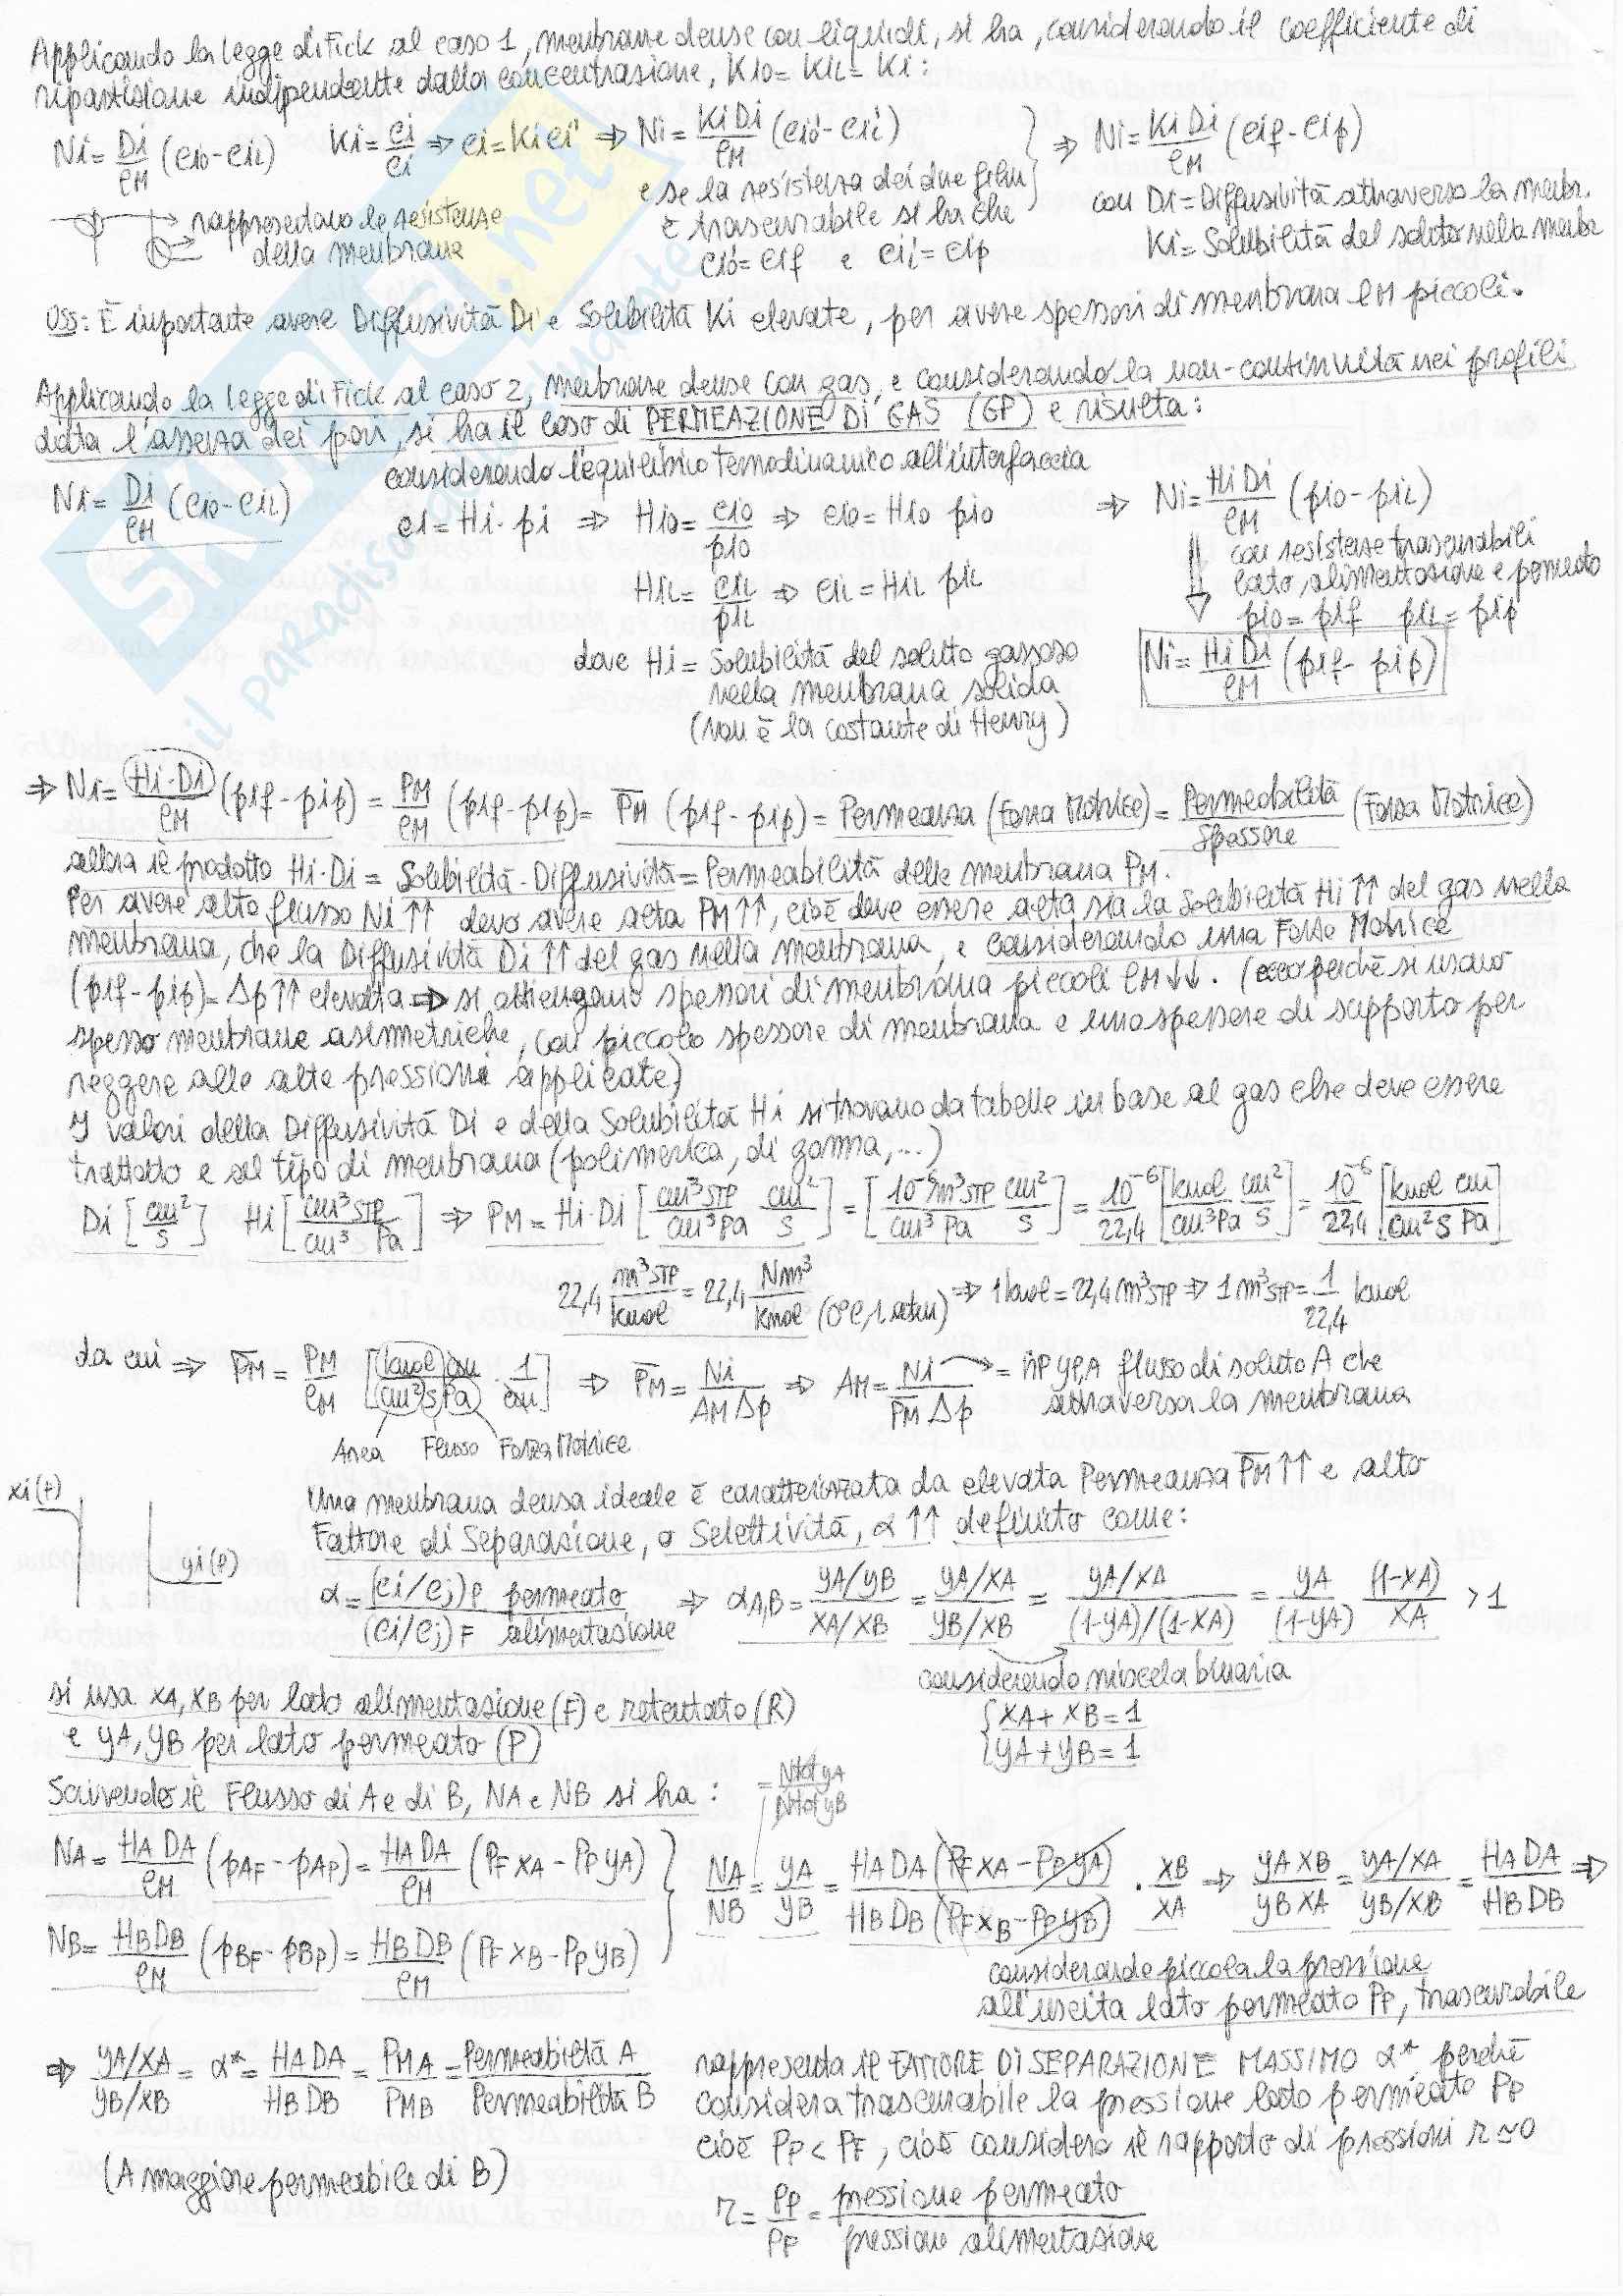 Applicando la legge di Fick al caso 1, membrane dense con liquidi, si ha, considerando il coefficiente di
ripartizione indipendente dalla concentrazione, Ki0 = KiL = Ki:
Ni = Di/lM (ci0 - ciL)   Ki = ci/ci' ⇒ ci = Ki ci' ⇒ Ni = Ki Di/lM (ci0' - ciL')   } ⇒ Ni = Ki Di/lM (cif - cip)
e se la resistenza dei due film
è trascurabile si ha che
ci0' = cif e ciL' = cip
con Di = Diffusività attraverso la membr.
Ki = Solubilità del soluto nella membr
rappresentano le resistenze
della membrana
Oss: È importante avere Diffusività Di e Solubilità Ki elevate, per avere spessori di membrana lM piccoli.
Applicando la legge di Fick al caso 2, membrane dense con gas, e considerando la non-continuità nei profili
data l'assenza dei pori, si ha il caso di PERMEAZIONE DI GAS (GP) e risulta:
considerando l'equilibrio termodinamico all'interfaccia
Ni = Di/lM (ci0 - ciL)   ci = Hi · pi ⇒ Hi0 = ci0/pi0 ⇒ ci0 = Hi0 pi0   ⇒ Ni = Hi Di/lM (pi0 - piL)
HiL = ciL/piL ⇒ ciL = HiL piL
con resistenze trascurabili
lato alimentazione e permeato
pi0 = pif   piL = pip
dove Hi = Solubilità del soluto gassoso
nella membrana solida
(Non è la costante di Henry)
Ni = Hi Di/lM (pif - pip)
⇒ Ni = Hi·Di/lM (pif - pip) = PM/lM (pif - pip) = P̅M (pif - pip) = Permeanza (Forza Motrice) = Permeabilità/Spessore (Forza Motrice)
allora il prodotto Hi·Di = Solubilità · Diffusività = Permeabilità della membrana PM.
Per avere alto flusso Ni ↑↑ devo avere alta PM ↑↑, cioè deve essere alta sia la Solubilità Hi ↑↑ del gas nella
membrana, che la Diffusività Di ↑↑ del gas nella membrana, e considerando una Forza Motrice
(pif - pip) = Δp ↑↑ elevata ⇒ si ottengono spessori di membrana piccoli lM ↓↓. (ecco perchè si usano
spesso membrane asimmetriche, con piccolo spessore di membrana e uno spessore di supporto per
reggere alle alte pressioni applicate)
I valori della Diffusività Di e della Solubilità Hi si trovano da tabelle in base al gas che deve essere
trattato e al tipo di membrana (polimerica, di gomma, ...)
Di [cm²/s]   Hi [cm³STP/cm³ Pa] ⇒ PM = Hi·Di [cm³STP/cm³Pa cm²/s] = [10⁻⁶m³STP/cm³ Pa cm²/s] = 10⁻⁶/22,4 [kmol/cm³Pa cm²/s] = 10⁻⁶/22,4 [kmol cm/cm² s Pa]
22,4 m³STP/kmol = 22,4 Nm³/kmol (0°C, 1 atm) ⇒ 1 kmol = 22,4 m³STP ⇒ 1 m³STP = 1/22,4 kmol
da cui ⇒ P̅M = PM/lM [kmol cm/cm² s Pa · 1/cm] ⇒ P̅M = Ni/AM Δp ⇒ AM = Ni/P̅M Δp → = ṅP yP,A flusso di soluto A che
attraversa la membrana
Area Flusso Forza Motrice
xi(f)
yi(p)
Una membrana densa ideale è caratterizzata da elevata Permeanza P̅M ↑↑ e alto
Fattore di Separazione, o Selettività, α ↑↑ definito come:
α = (ci/cj)P permeato/(ci/cj)F alimentazione ⇒ αA,B = yA/yB / xA/xB = yA/xA / yB/xB = yA/xA / (1-yA)/(1-xA) = yA/(1-yA) (1-xA)/xA > 1
considerando miscela binaria
{ xA + xB = 1
{ yA + yB = 1
si usa xA, xB per lato alimentazione (F) e retentato (R)
e yA, yB per lato permeato (P)
Scrivendo il Flusso di A e di B, NA e NB si ha:
= Ntot yA/Ntot yB
NA = HA DA/lM (pAF - pAP) = HA DA/lM (PF xA - PP yA)
NB = HB DB/lM (pBF - pBP) = HB DB/lM (PF xB - PP yB)
NA/NB = yA/yB = HA DA (PF xA - PP yA)/HB DB (PF xB - PP yB) · xB/xA ⇒ yA xB/yB xA = yA/xA / yB/xB = HA DA/HB DB ⇒
considerando piccola la pressione
all'uscita lato permeato PP, trascurabile
⇒ yA/xA / yB/xB = α* = HA DA/HB DB = PMA/PMB = Permeabilità A/Permeabilità B
rappresenta il FATTORE DI SEPARAZIONE MASSIMO α* perchè
considera trascurabile la pressione lato permeato PP
cioè PP < PF, cioè considero il rapporto di pressioni r ≃ 0
(A maggiore permeabile di B)
r = PP/PF = pressione permeato/pressione alimentazione
SKUOLA.net
il paradiso